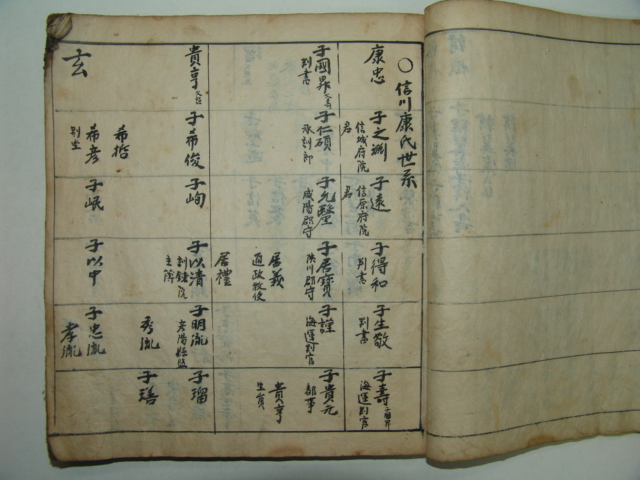 ○信川康氏世系
康忠
子之淵 信城府院君
子遠 信原府院君
子得和 判書
子生敬 判書
子壽 海運判官
子國昇 判書
子仁碩 承訓郎
子允釐 咸陽郡守
子居寶 陜川郡守
居義 通政牧使
居禮
子謹 海運判官
子貴元 都事
貴亨 生員
貴亨
子希俊
希哲
希彦 別坐
子峋
子岷
子以清
主簿
子以中
子明胤
秀胤
子忠胤
孝胤
子瑠
子璿
玄